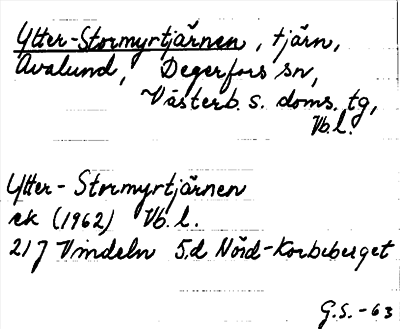 Ytter-Stormyrtjärnen, tjärn,
Avalund, Degerfors sn,
Västerb. s. doms. tg,
Vb. l.
Ytter-Stormyrtjärnen
ek (1962) Vb. l.
21J Vindeln 5d Nörd-Korbeberget
G.S. -63